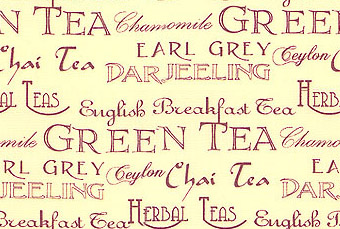 EN TEA Chamomile GREEN TEA
Chai Tea EARL GREY Ceylon
DARJEELING
HERBAL TEAS English Breakfast Tea HERBAL
Chamomile GREEN TEA Chamomile
EARL GREY Ceylon Chai Tea EARL
DARJEELING DARJ
Breakfast Tea HERBAL TEAS English Br